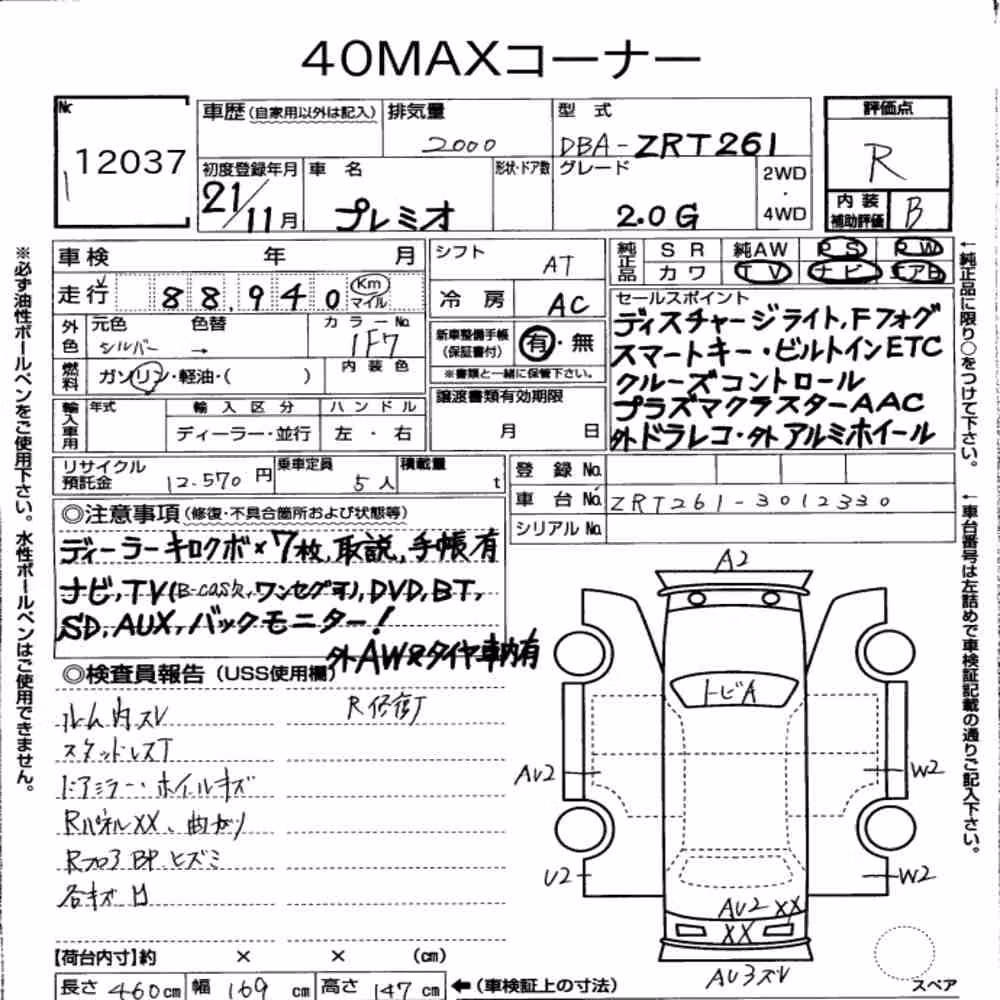 40MAXコーナー
No. 12037
車歴(自家用以外は記入) 排気量 2000 型式 DBA-ZRT261
初度登録年月 21/11月 車名 プレミオ 形状・ドア数 グレード 2.0G 2WD・4WD
評価点 R
内装補助評価 B
車検 年 月
走行 88,940 Km マイル
外色 元色 シルバー 色替 → カラーNo. 1F7
燃料 ガソリン・軽油・( ) 内装色
輸入車用 年式 輸入区分 ディーラー・並行 ハンドル 左・右
リサイクル預託金 12.570円 乗車定員 5人 積載量 t
シフト AT
冷房 AC
新車整備手帳(保証書付) 有・無
※書類と一緒に保管下さい。
譲渡書類有効期限 月 日
純正品 SR 純AW PS PW
カワ TV ナビ エアB
セールスポイント
ディスチャージライト,Fフォグ
スマートキー・ビルトインETC
クルーズコントロール
プラズマクラスターAAC
外ドラレコ・外アルミホイール
登録No.
車台No. ZRT261-3012330
シリアルNo.
◎注意事項(修復・不具合箇所および状態等)
ディーラーキロクボ×7枚,取説,手帳有
ナビ,TV(B-cas,ワンセグ可),DVD,BT,
SD,AUX,バックモニター!
外AW&タイヤ車内有
◎検査員報告(USS使用欄)
ルーム内スレ R修復T
スタッドレスT
ドアミラー・ホイルキズ
RパネルXX、曲がり
Rフロア BP ヒズミ
各キズ凹
【荷台内寸】約 × × (cm)
長さ 460cm 幅 169cm 高さ 147cm ←(車検証上の寸法)
A2
トビA
AU2
W2
U2
W2
AU2 XX
XX
AU3スレ
スペア
※必ず油性ボールペンをご使用下さい。水性ボールペンはご使用できません。
←純正品に限り○をつけて下さい。
←車台番号は左詰めで車検証記載の通りご記入下さい。